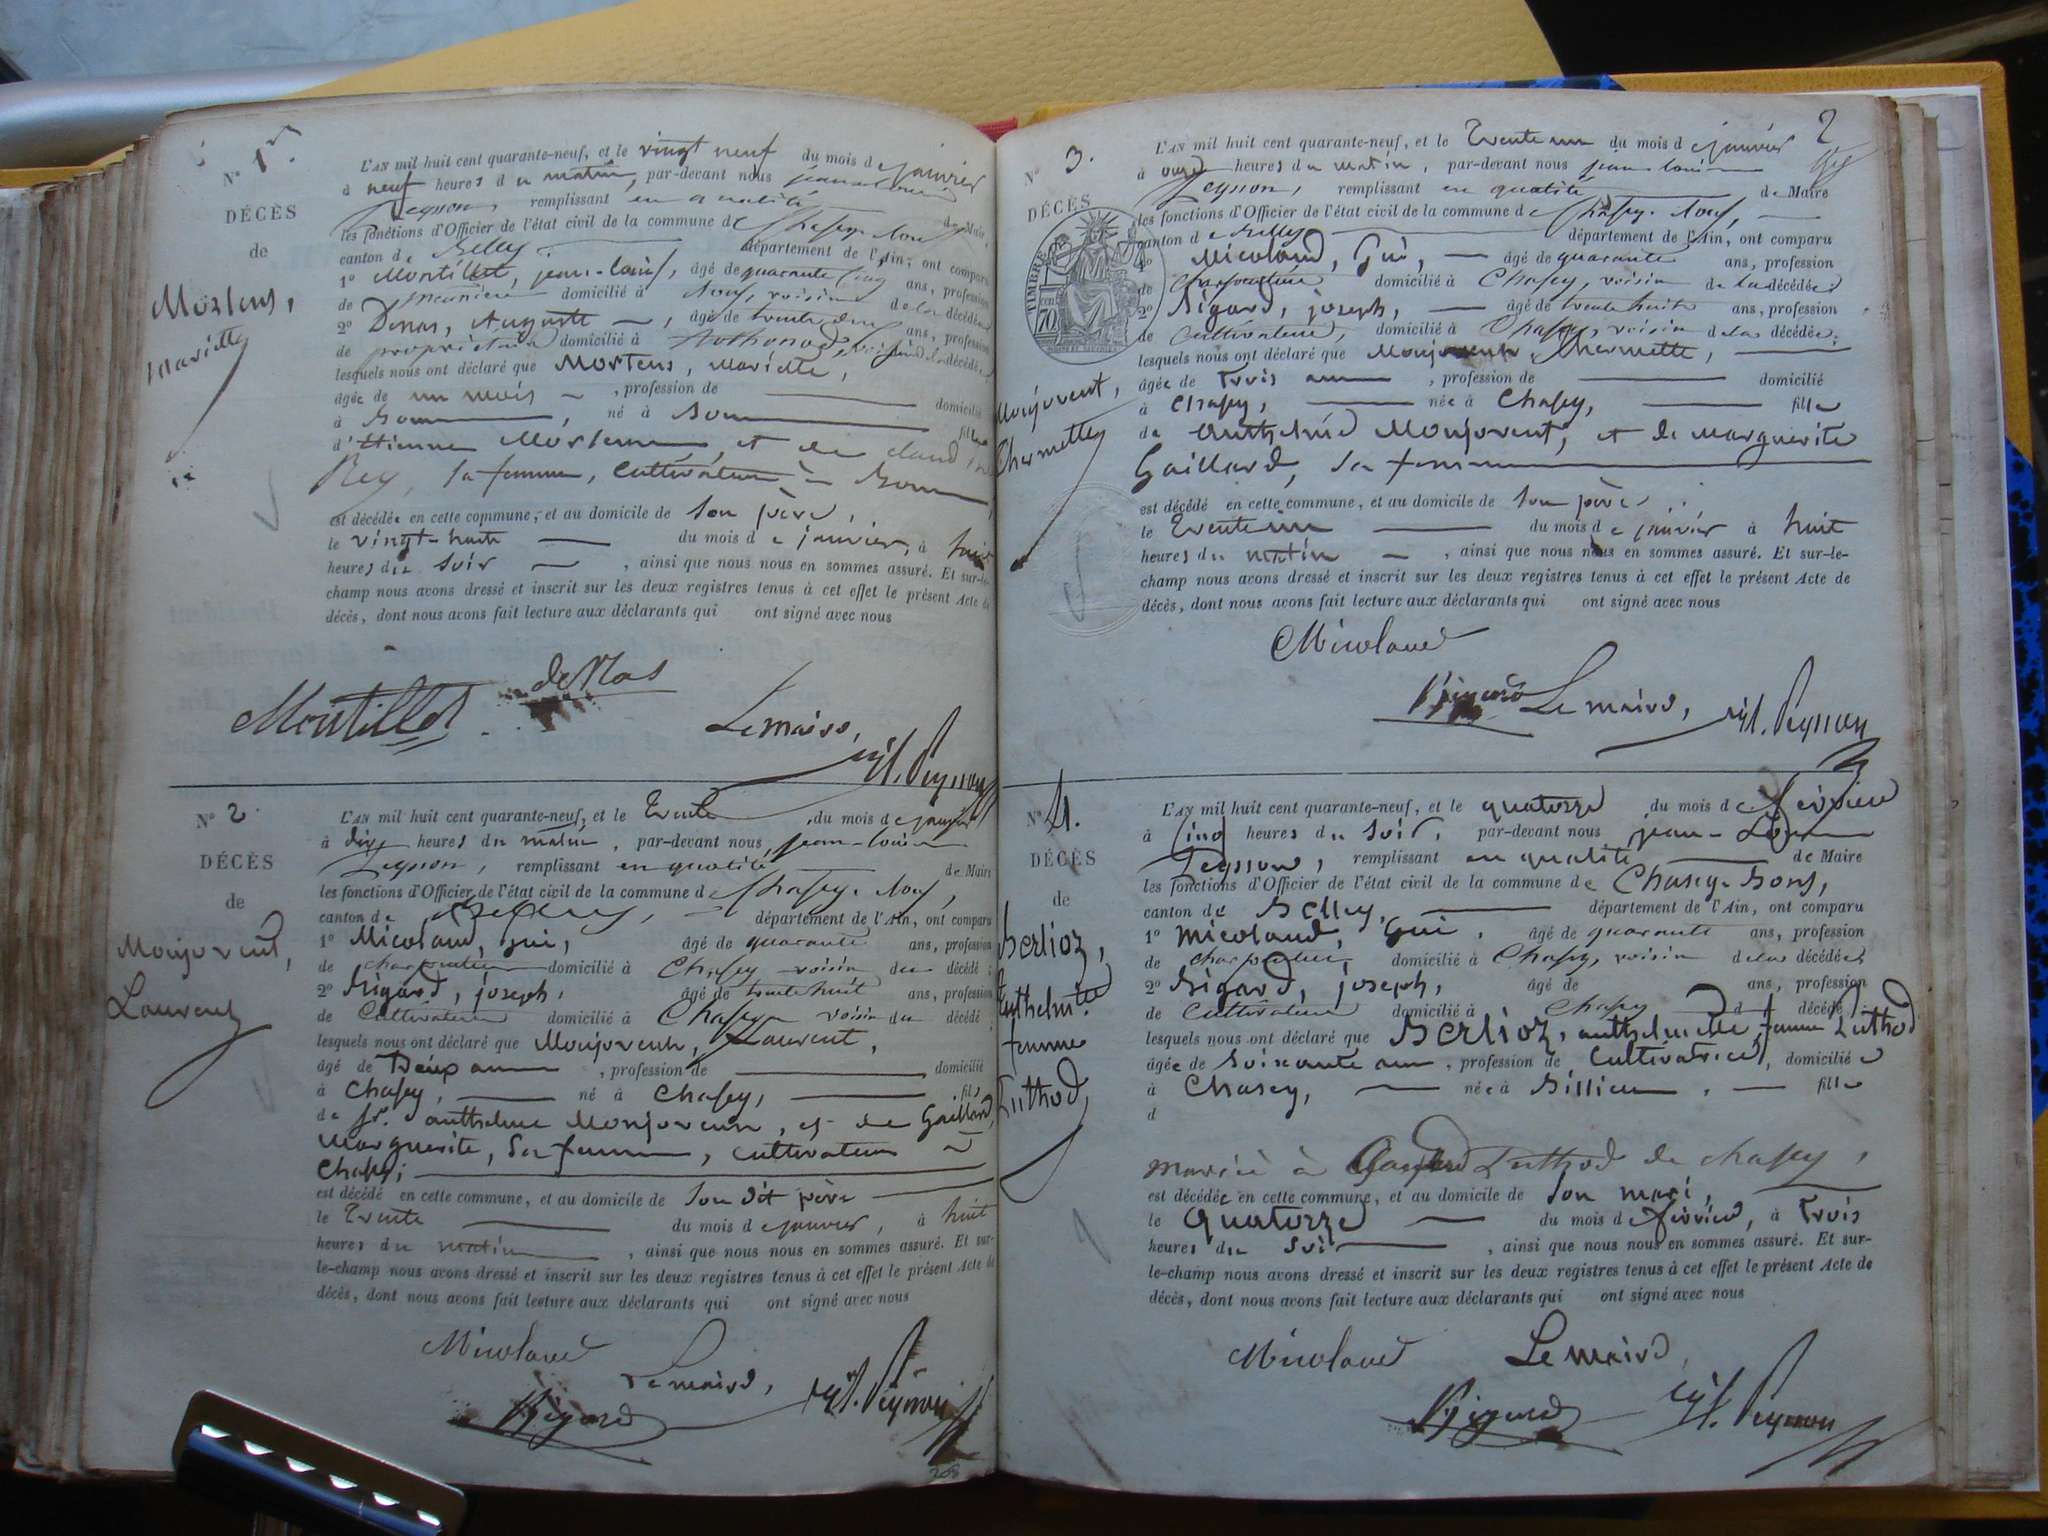 Nº 1er
DÉCÈS
de
Mortens,
Mariette
L'AN mil huit cent quarante-neuf, et le vingt neuf du mois de janvier
à neuf heures du matin, par-devant nous jean-louis
Peysson, remplissant en qualité de Maire
les fonctions d'Officier de l'état civil de la commune de Chasey-Bons
canton de Belley département de l'Ain, ont comparu
1º Montillet, jean-louis, âgé de quarante cinq ans, profession
de meunier domicilié à Bons, voisin de la décédée
2º Denas, Auguste, âgé de trente deux ans, profession
de propriétaire domicilié à Rothonod, voisin de la décédée,
lesquels nous ont déclaré que Mortens, Mariette,
âgée de un mois, profession de domicilié
à Bons, né à Bons fille
d'Etienne Mortens, et de claudine
Rey, sa femme, cultivateurs à Bons
est décédée en cette commune, et au domicile de son père,
le vingt-huit du mois de janvier, à huit
heures du soir, ainsi que nous nous en sommes assuré. Et sur-le-
champ nous avons dressé et inscrit sur les deux registres tenus à cet effet le présent Acte de
décès, dont nous avons fait lecture aux déclarants qui ont signé avec nous
Montillet deNas Le maire,
Peysson
Nº 2.
DÉCÈS
de
Monjovent,
Laurent
L'AN mil huit cent quarante-neuf, et le Trente du mois de janvier
à dix heures du matin, par-devant nous jean-louis
Peysson, remplissant en qualité de Maire
les fonctions d'Officier de l'état civil de la commune de Chasey-Bons,
canton de Belley, département de l'Ain, ont comparu
1º Micoland, Gui, âgé de quarante ans, profession
de charpentier domicilié à Chasey voisin du décédé;
2º Rigard, joseph, âgé de trente huit ans, profession
de Cultivateur domicilié à Chasey voisin du décédé
lesquels nous ont déclaré que Monjovent, Laurent,
âgé de Deux ans, profession de domicilié
à Chasey, né à Chasey, fils
de Sr. anthelme Monjovent, et de Gaillard,
Marguerite, Sa femme, cultivateurs à
Chasey;
est décédé en cette commune, et au domicile de Son dit père
le Trente du mois de janvier, à huit
heures du matin, ainsi que nous nous en sommes assuré. Et sur-
le-champ nous avons dressé et inscrit sur les deux registres tenus à cet effet le présent Acte de
décès, dont nous avons fait lecture aux déclarants qui ont signé avec nous
Micoland
Le maire,
Rigard Peysson
2
Nº 3.
DÉCÈS
TIMBRE
70
Monjovent,
Thermette
L'AN mil huit cent quarante-neuf, et le Trente un du mois de janvier
à onze heures du matin, par-devant nous jean-louis
Peysson, remplissant en qualité de Maire
les fonctions d'Officier de l'état civil de la commune de Chasey-Bons,
canton de Belley département de l'Ain, ont comparu
1º Micoland, Gui, âgé de quarante ans, profession
de Charpentier domicilié à Chasey, voisin de la décédée;
2º Rigard, joseph, âgé de trente huit ans, profession
de Cultivateur, domicilié à Chasey, voisin de la décédée;
lesquels nous ont déclaré que Monjovent, Thermette,
âgée de Trois ans, profession de domicilié
à Chasey, née à Chasey, fille
de Anthelme Monjovent, et de Marguerite
Gaillard, Sa femme
est décédé en cette commune, et au domicile de Son père,
le Trente un du mois de janvier à huit
heures du matin, ainsi que nous nous en sommes assuré. Et sur-le-
champ nous avons dressé et inscrit sur les deux registres tenus à cet effet le présent Acte de
décès, dont nous avons fait lecture aux déclarants qui ont signé avec nous
Micoland
Rigard Le maire, Peysson
Nº 4.
DÉCÈS
de
Berlioz,
Anthelmette
femme
Luthod
L'AN mil huit cent quarante-neuf, et le quatorze du mois de février
à Cinq heures du Soir, par-devant nous jean-Louis
Peysson, remplissant en qualité de Maire
les fonctions d'Officier de l'état civil de la commune de Chasey-Bons,
canton de Belley, département de l'Ain, ont comparu
1º Micoland, Gui, âgé de quarante ans, profession
de charpentier domicilié à Chasey, voisin de la décédée
2º Rigard, joseph, âgé de ans, profession
de Cultivateur domicilié à Chasey d décédé
lesquels nous ont déclaré que Berlioz, anthelmette, femme Luthod
âgée de Soixante ans, profession de Cultivatrice, domiciliée
à Chasey, née à Billieu, fille
d
mariée à Luthod de chasey,
est décédée en cette commune, et au domicile de Son mari,
le Quatorze du mois de février, à Trois
heures du Soir, ainsi que nous nous en sommes assuré. Et sur-
le-champ nous avons dressé et inscrit sur les deux registres tenus à cet effet le présent Acte de
décès, dont nous avons fait lecture aux déclarants qui ont signé avec nous
Micoland Le maire,
Rigard Peysson